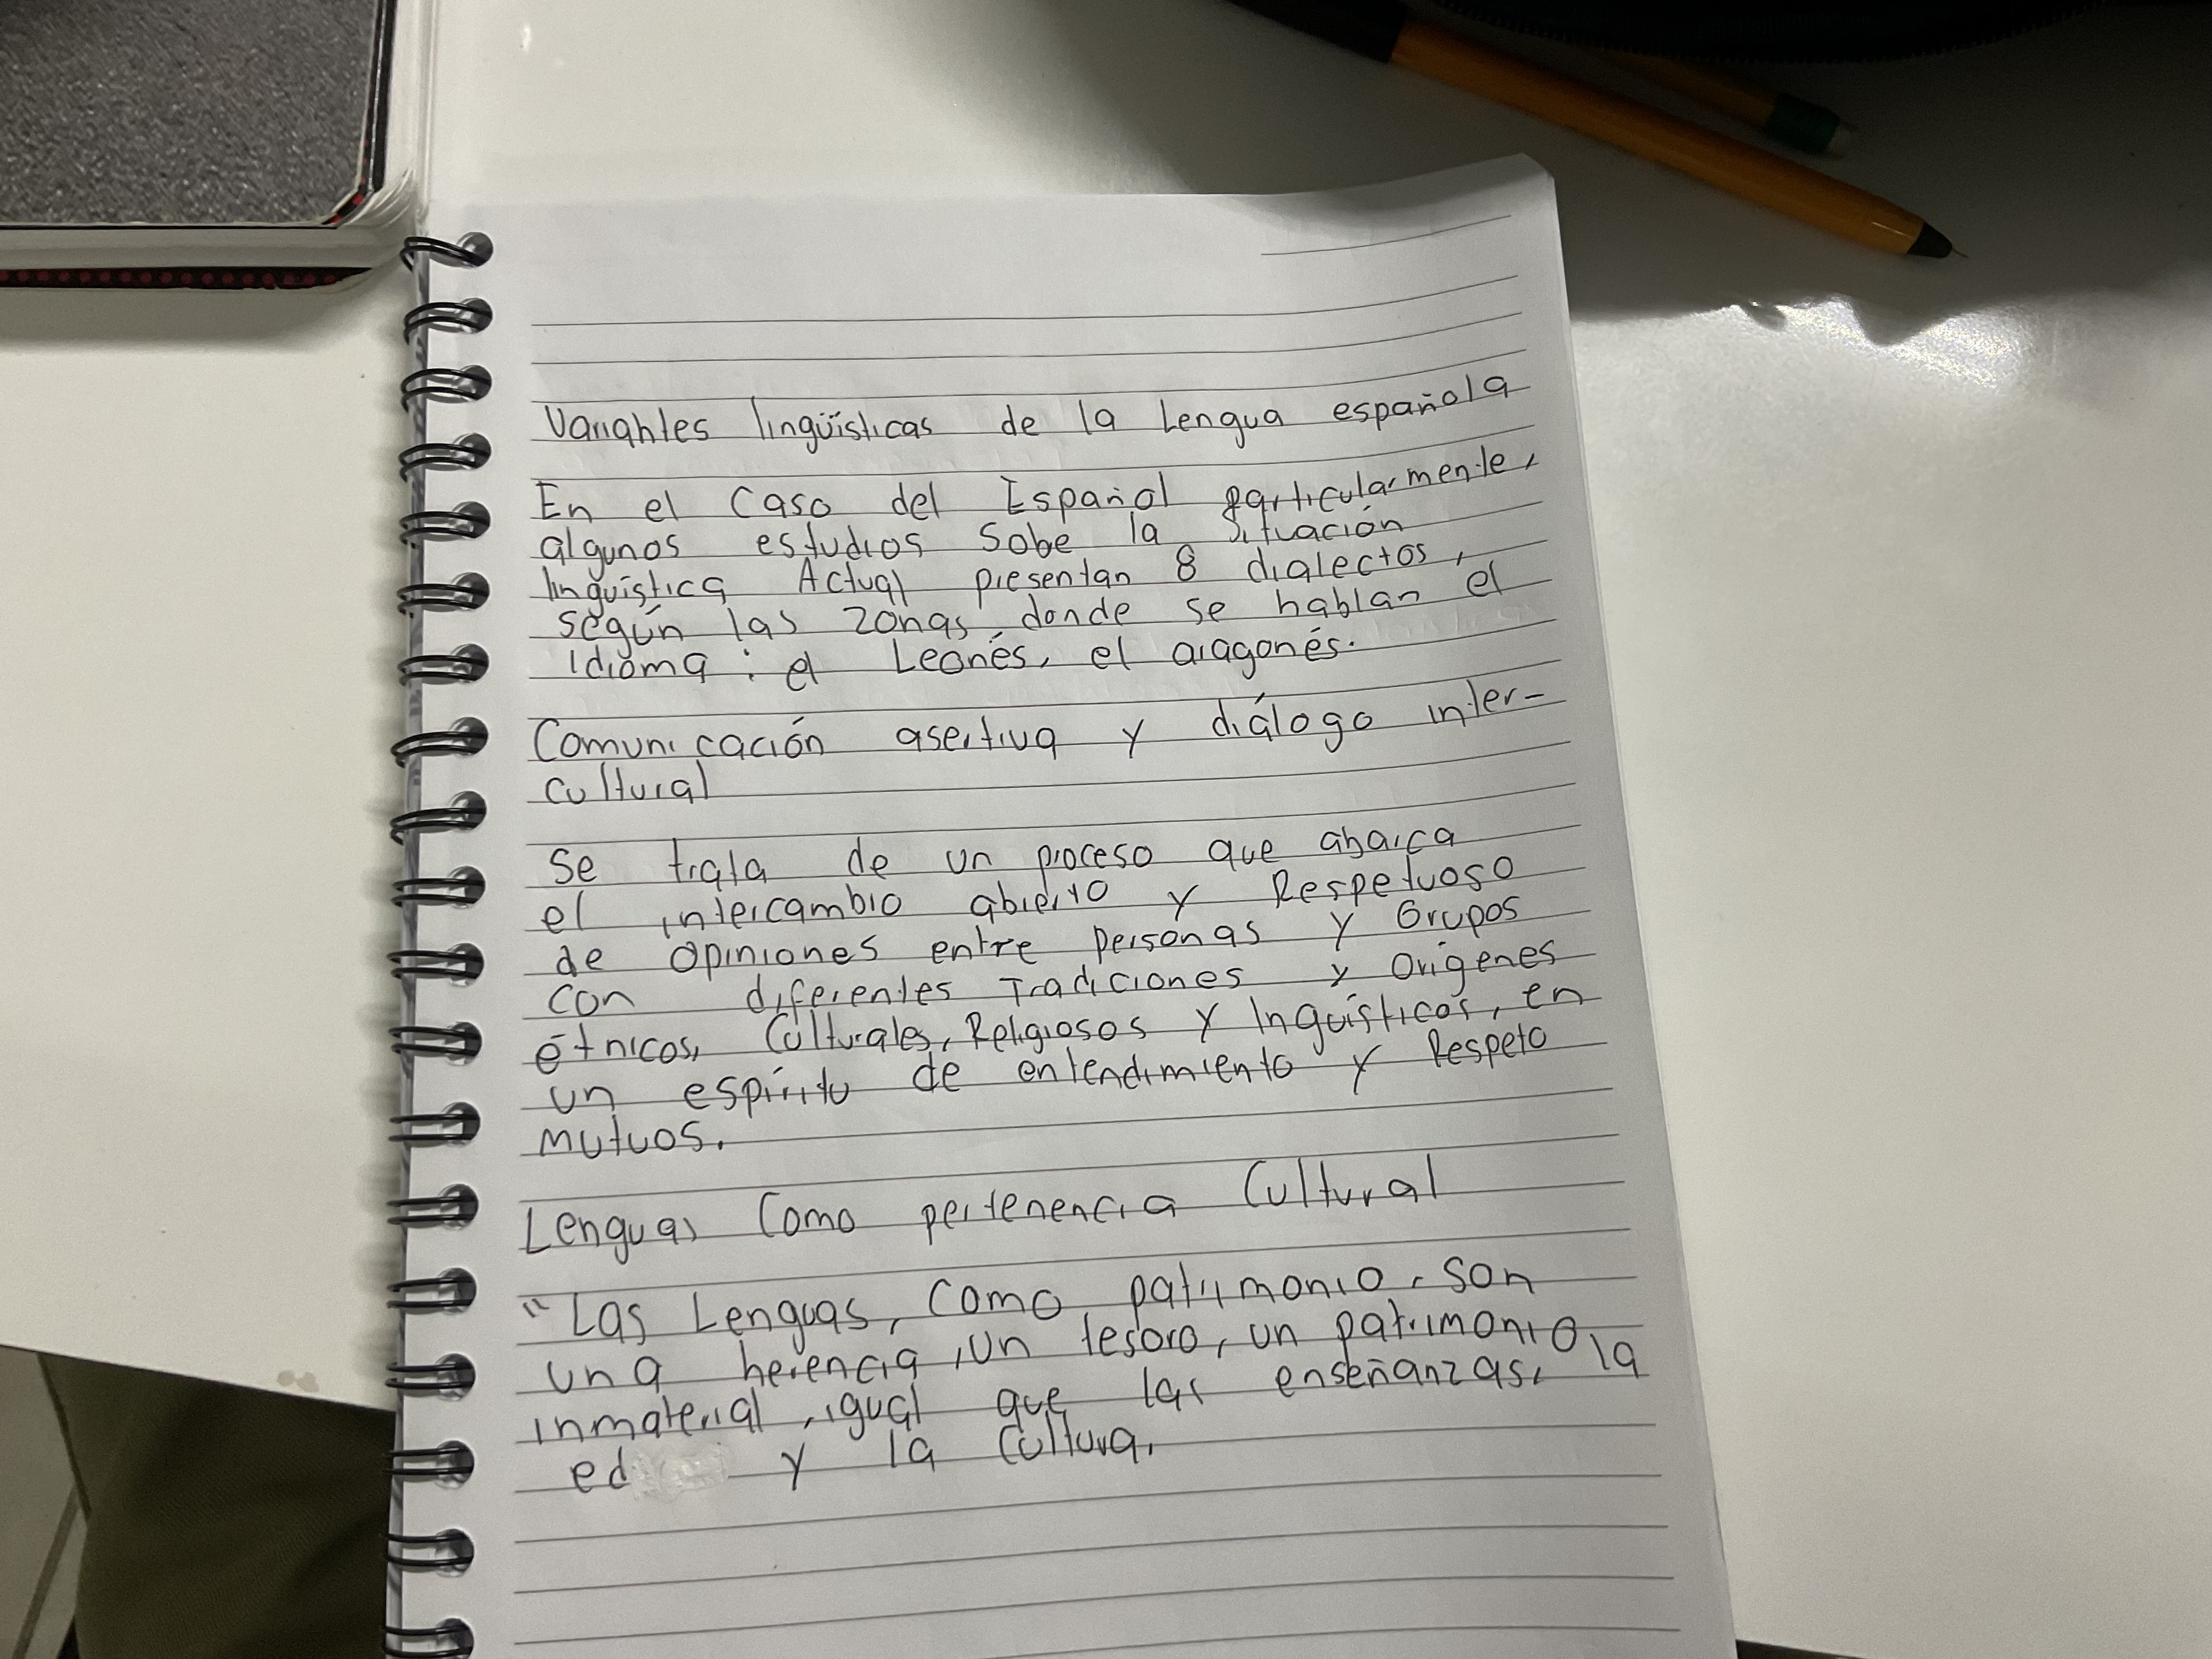 Variables lingüísticas de la Lengua española
En el Caso del Español particularmente,
algunos estudios Sobe la situación
lingüistica Actual presentan 8 dialectos,
según las zonas donde se hablan el
idioma: el Leonés, el aragonés.
Comunicación asertiva y diálogo inter-
cultural
Se trata de un proceso que abarca
el intercambio abierto y Respetuoso
de Opiniones entre personas y Grupos
con diferentes Tradiciones y Orígenes
étnicos, Culturales, Religiosos y lingüísticos, en
un espíritu de entendimiento y Respeto
mutuos.
Lenguas Como pertenencia Cultural
"Las Lenguas, Como patrimonio, son
una herencia, un tesoro, un patrimonio
inmaterial, igual que las enseñanzas, la
ed y la Cultura.